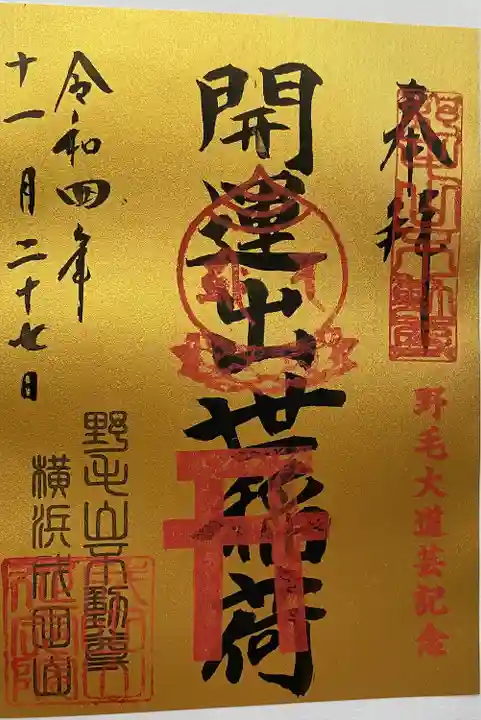 奉拝
野毛大道芸記念
開運出世稲荷
令和四年
十一月二十七日
野毛山不動尊
横浜成田山